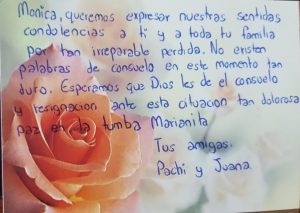 Monica, queremos expresar nuestras sentidas
condolencias a ti y a toda tu familia
por tan irreparable perdida. No existen
palabras de consuelo en este momento tan
duro. Esperamos que Dios les de el consuelo
y resignacion ante esta cituacion tan dolorosa
paz en la tumba Marianita
Tus amigas:
Pachi y Juana